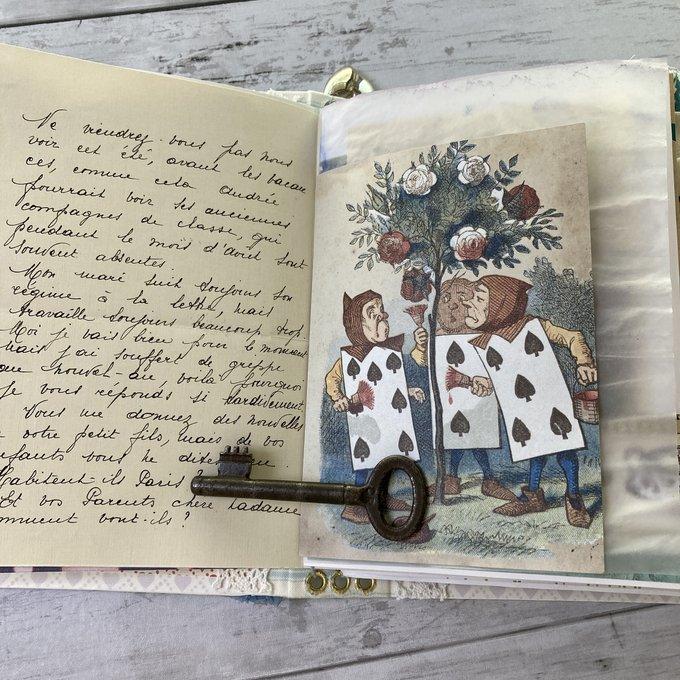 Ne viendrez-vous pas nous
voir cet été, avant les vacan
ces, comme cela Andrée
pourrait voir ses anciennes
compagnes de classe, qui
pendant le mois d'août sont
souvent absentes.
Mon mari suit toujours son
régime à la lettre, mais
travaille toujours beaucoup trop.
Moi je vais bien pour le moment
mais j'ai souffert de grippe
au nouvel-an, voilà pourquoi
je vous réponds si tardivement
Vous me donnez des nouvelles
votre petit fils, mais de vos
enfants vous ne dites
habitent ils Paris?
Et vos Parents chère Madame
comment vont-ils?